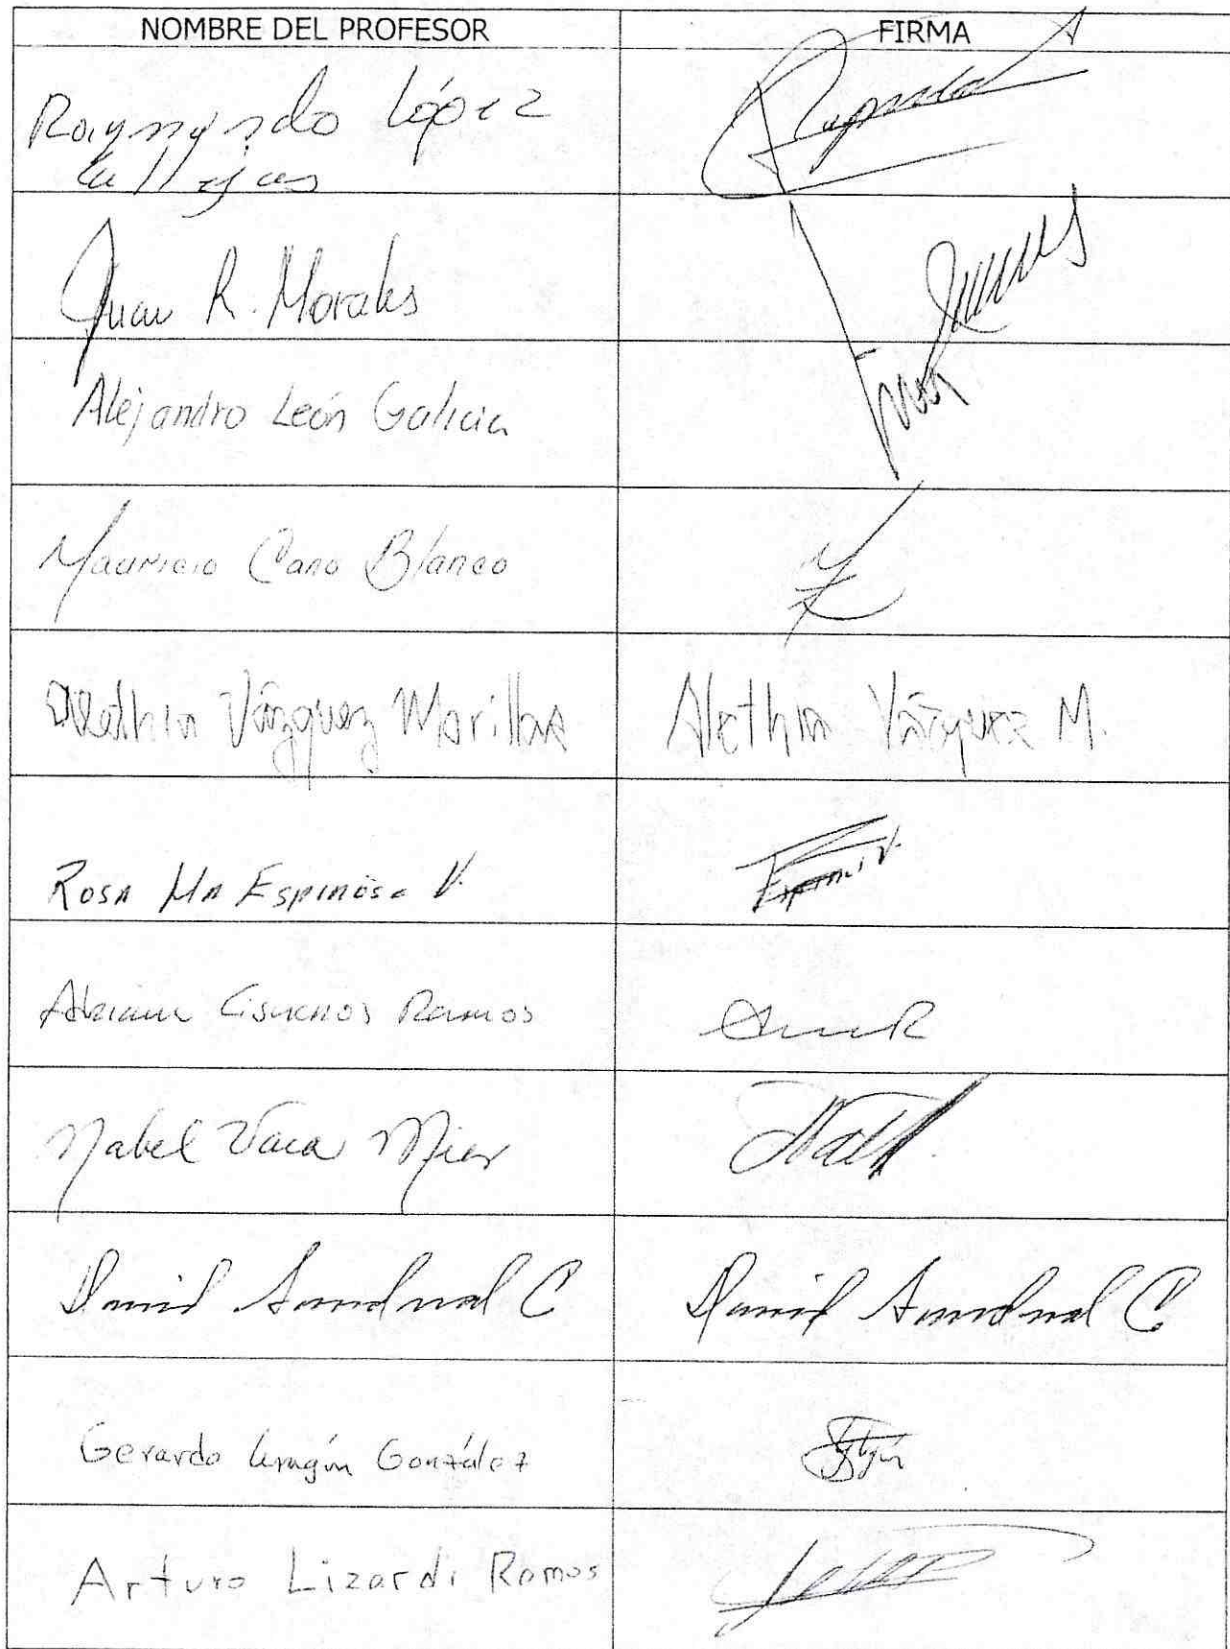 NOMBRE DEL PROFESOR FIRMA
Raymundo López
Callejas
Juan R. Morales
Alejandro León Galicia
Mauricio Cano Blanco
Alethia Vázquez Morillas Alethia Vázquez M.
Rosa Ma Espinosa V.
Adriana Cisneros Ramos
Mabel Vaca Mier
David Sandoval C David Sandoval C
Gerardo Aragón González
Arturo Lizardi Ramos